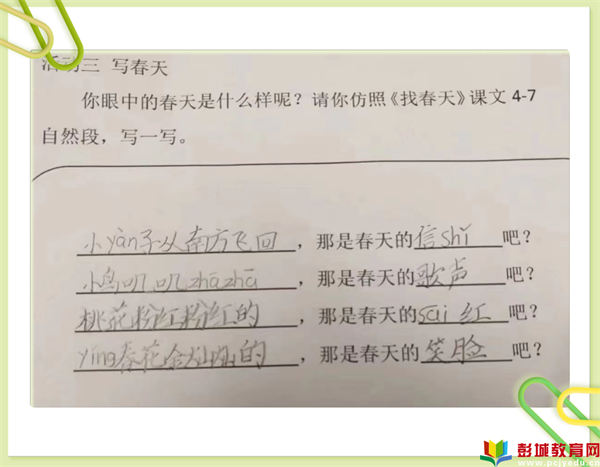 活动三 写春天
你眼中的春天是什么样呢？请你仿照《找春天》课文 4-7
自然段，写一写。
小yàn子从南方飞回，那是春天的信shǐ吧？
小鸟叽叽zhāzhā，那是春天的歌声吧？
桃花粉红粉红的，那是春天的sāi红吧？
yíng春花金灿灿的，那是春天的笑脸吧？
彭城教育网
www.pcjyedu.cn